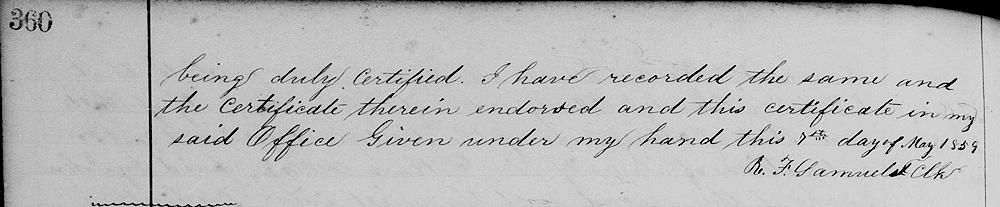 360
being duly Certified. I have recorded the same and
the Certificate therein endorsed and this certificate in my
said Office Given under my hand this 7th day of May 1859
R. F. Samuel Clk